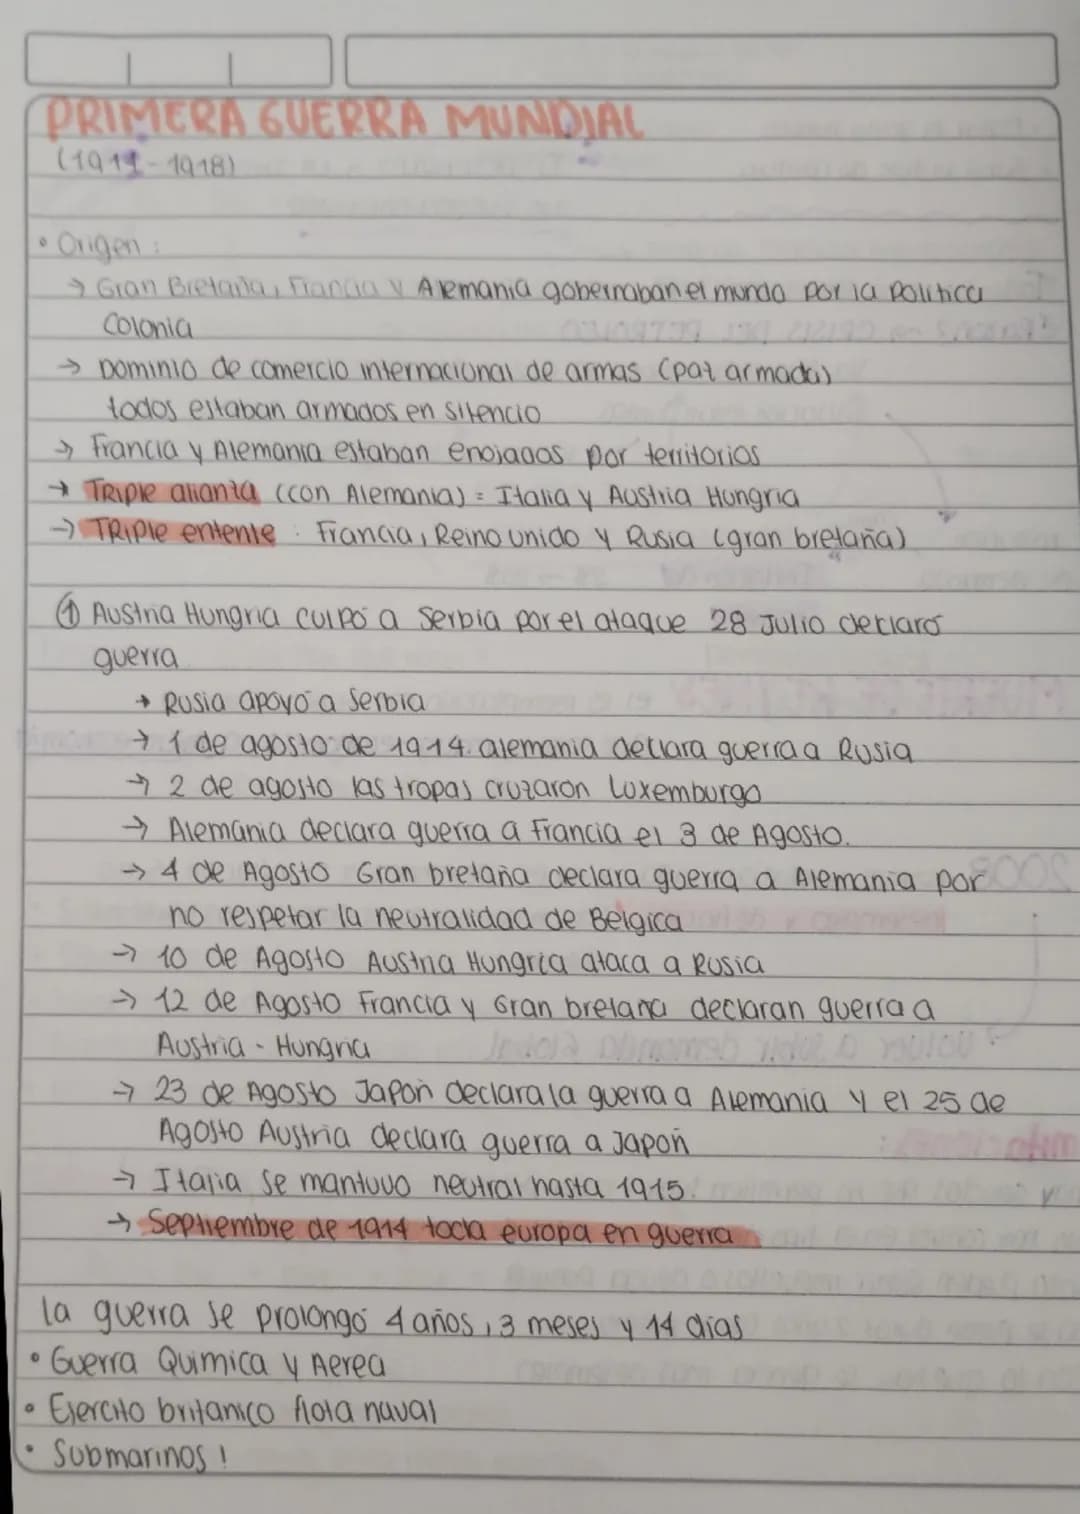 PRIMERA GUERRA MUNDIAL
(1914-1918)
• Origen:
→ Gran Bretaña, Francia y Alemania gobernaban el mundo por la Politica
Colonia
→ Dominio de comercio internacional de armas (paz armada)
todos estaban armados en silencio
→ Francia y Alemania estaban enojados por territorios
→ Triple alianza (con Alemania) = Italia y Austria Hungria
→ TRiPle entente : Francia, Reino unido y Rusia (gran bretaña)
① Austria Hungria culpó a Serbia por el ataque 28 Julio declaró
guerra
→ Rusia apoyó a Serbia
→ 1 de agosto de 1914 alemania declara guerra a Rusia
→ 2 de agosto las tropas cruzaron Luxemburgo
→ Alemania declara guerra a Francia el 3 de Agosto.
→ 4 de Agosto Gran bretaña declara guerra a Alemania por
no respetar la neutralidad de Belgica
→ 10 de Agosto Austria Hungria ataca a Rusia
→ 12 de Agosto Francia y Gran bretaña declaran guerra a
Austria - Hungria
→ 23 de Agosto Japón declara la guerra a Alemania y el 25 de
Agosto Austria declara guerra a Japón
→ Italia se mantuvo neutral hasta 1915.
→ Septiembre de 1914 toda europa en guerra
la guerra se prolongó 4 años, 3 meses y 14 dias
• Guerra Quimica y Aerea
• Ejercito britanico flota naval
• Submarinos !